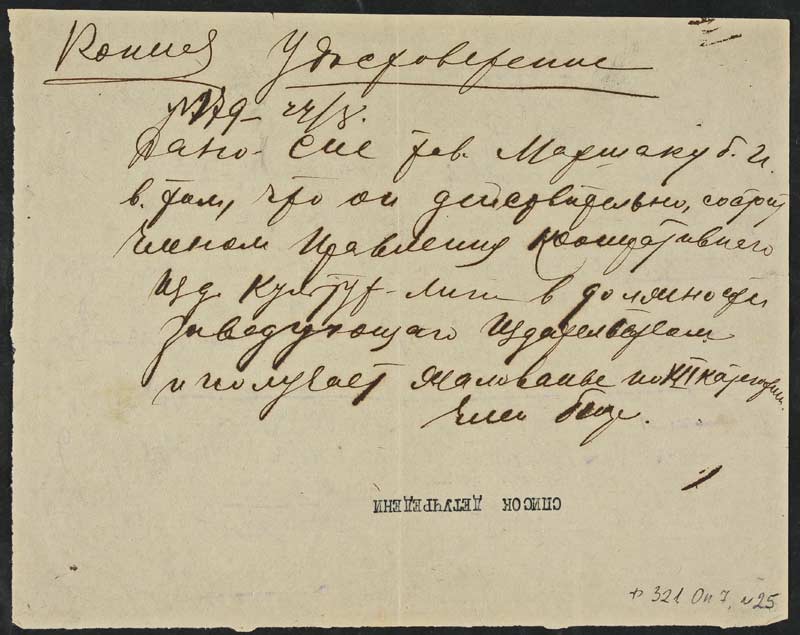 Копия Удостоверение
№ 179 – 24/X.
Дано сие тов. Маршаку Б. И.
в том, что он действительно, состоит
членом Правления Кооперативного
Изд. Культур-Лиги в должности
Заведующего Издательством
и получает жалованье по XII категории.
Член бюро.
СПИСОК ДЕТУЧРЕДЕНИ
ф 321 Оп 7, № 25